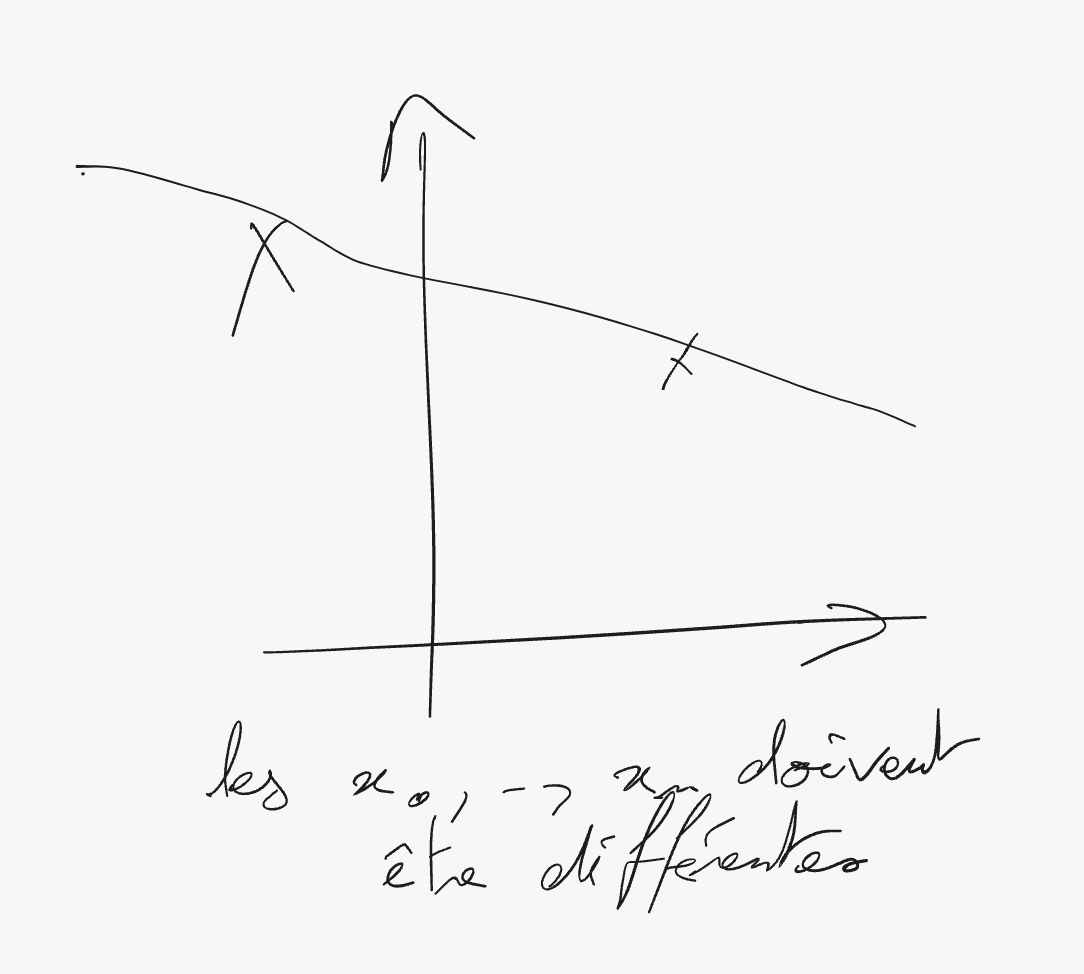 les x₀, --, xₙ doivent
être différentes